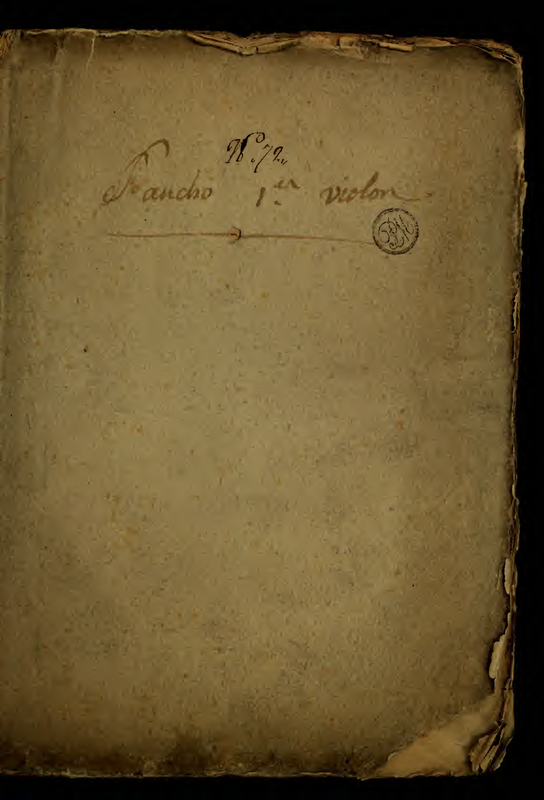 N.º 72..
Sancho 1.er violon